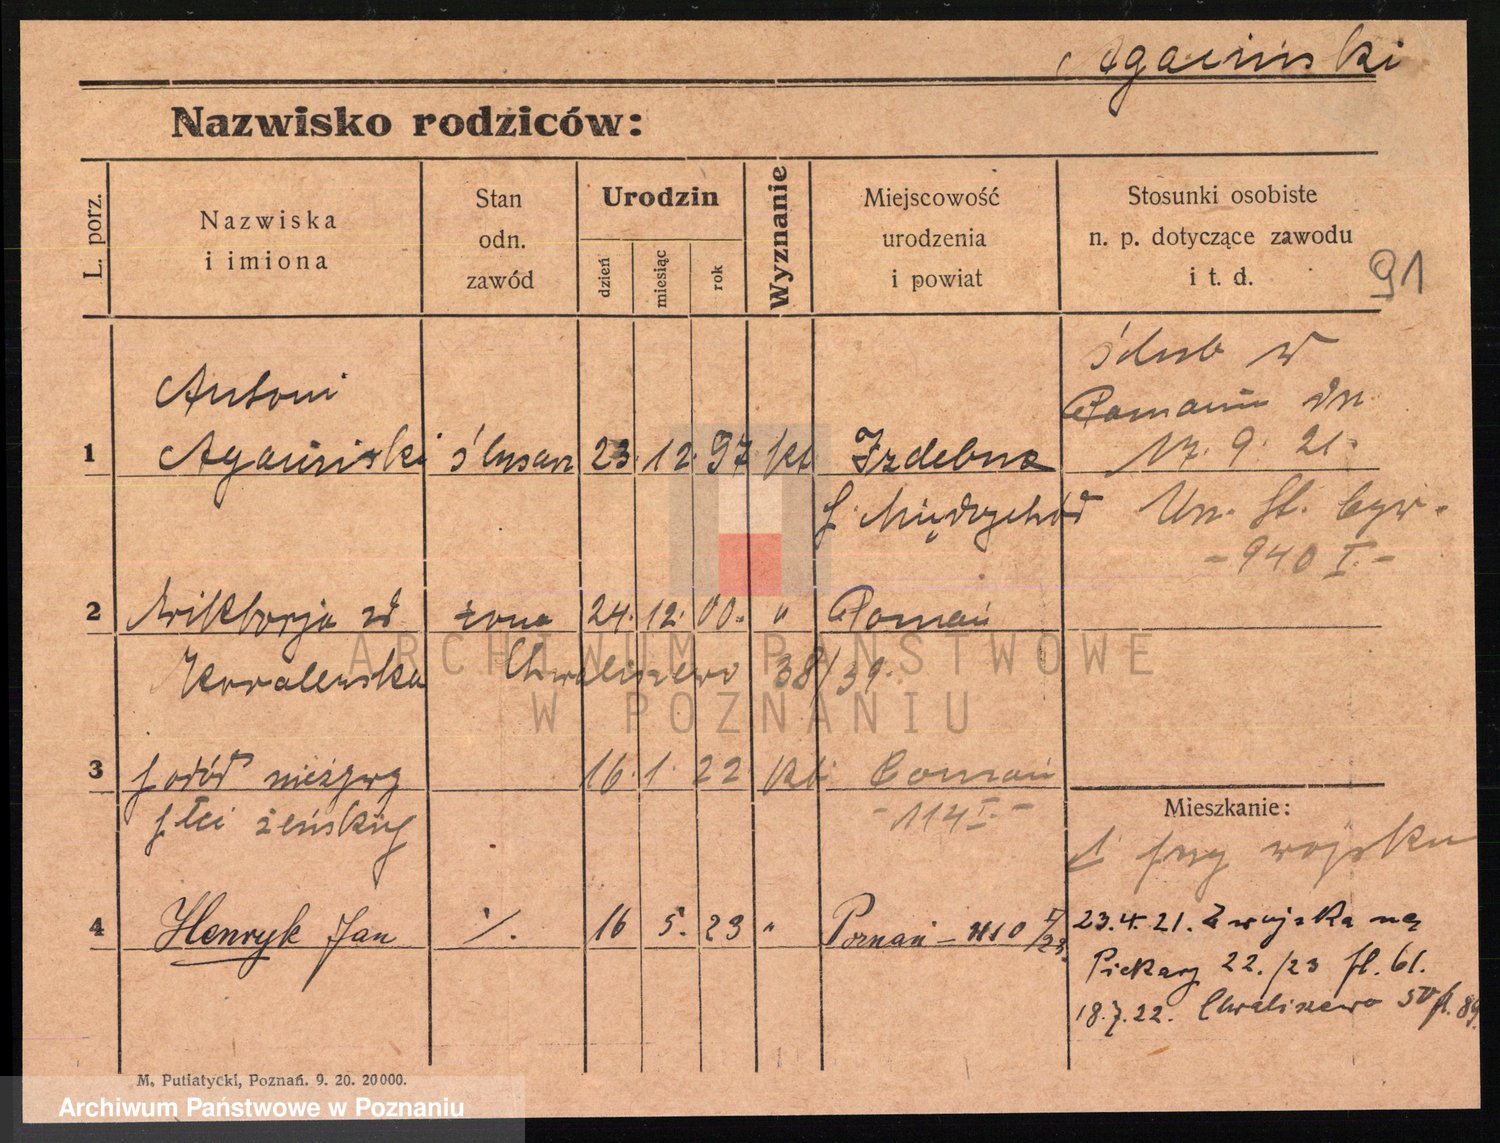 Agaciński
Nazwisko rodziców:
L. porz.
Nazwiska
i imiona
Stan
odn.
zawód
Urodzin
dzień
miesiąc
rok
Wyznanie
Miejscowość
urodzenia
i powiat
Stosunki osobiste
n. p. dotyczące zawodu
i t. d.
91
ślub w
Poznaniu dn
17. 9. 21.
Antoni
1 Agaciński ślusarz 23. 12. 97 kt Izdebno
p. Międzychód
940 I.
2 Wiktorja zd żona 24. 12. 00. " Poznań
Kowalewska Chwaliszewo 38/39.
3 płód nieżywy 16. 1. 22 kt. Poznań
płci żeńskiej - 114 I -
Mieszkanie:
przy wojsku
4 Henryk Jan ·/. 16 5. 23 " Poznań - 1410 I/23.
23.4.21. Z wojska na
Piekary 22./23 pl. 61.
18.7.22. Chwaliszewo 50 pl. 89.
M. Putiatycki, Poznań. 9. 20. 20000.
ARCHIWUM PAŃSTWOWE
W POZNANIU
Archiwum Państwowe w Poznaniu